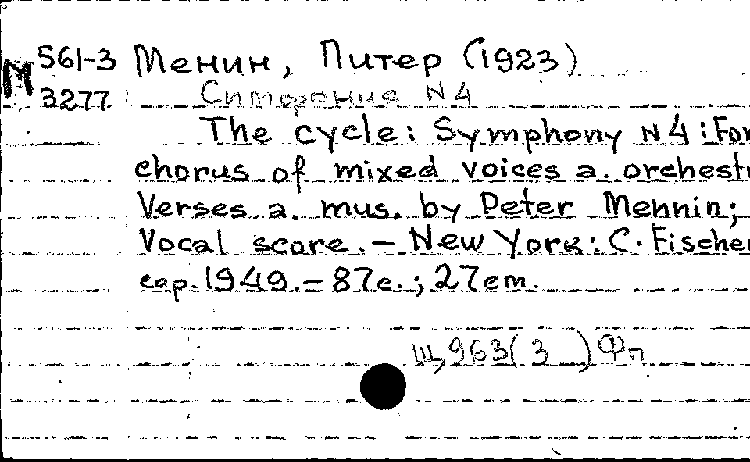 М 561-3 Менин, Питер (1923)
3277 Симфония N4
The cycle: Symphony N4: For
chorus of mixed voices a. orchestr
Verses a. mus. by Peter Mennin;
Vocal score. – New York: C. Fischer
cop. 1949. – 87c.; 27cm.
Щ963(3 ) Фп